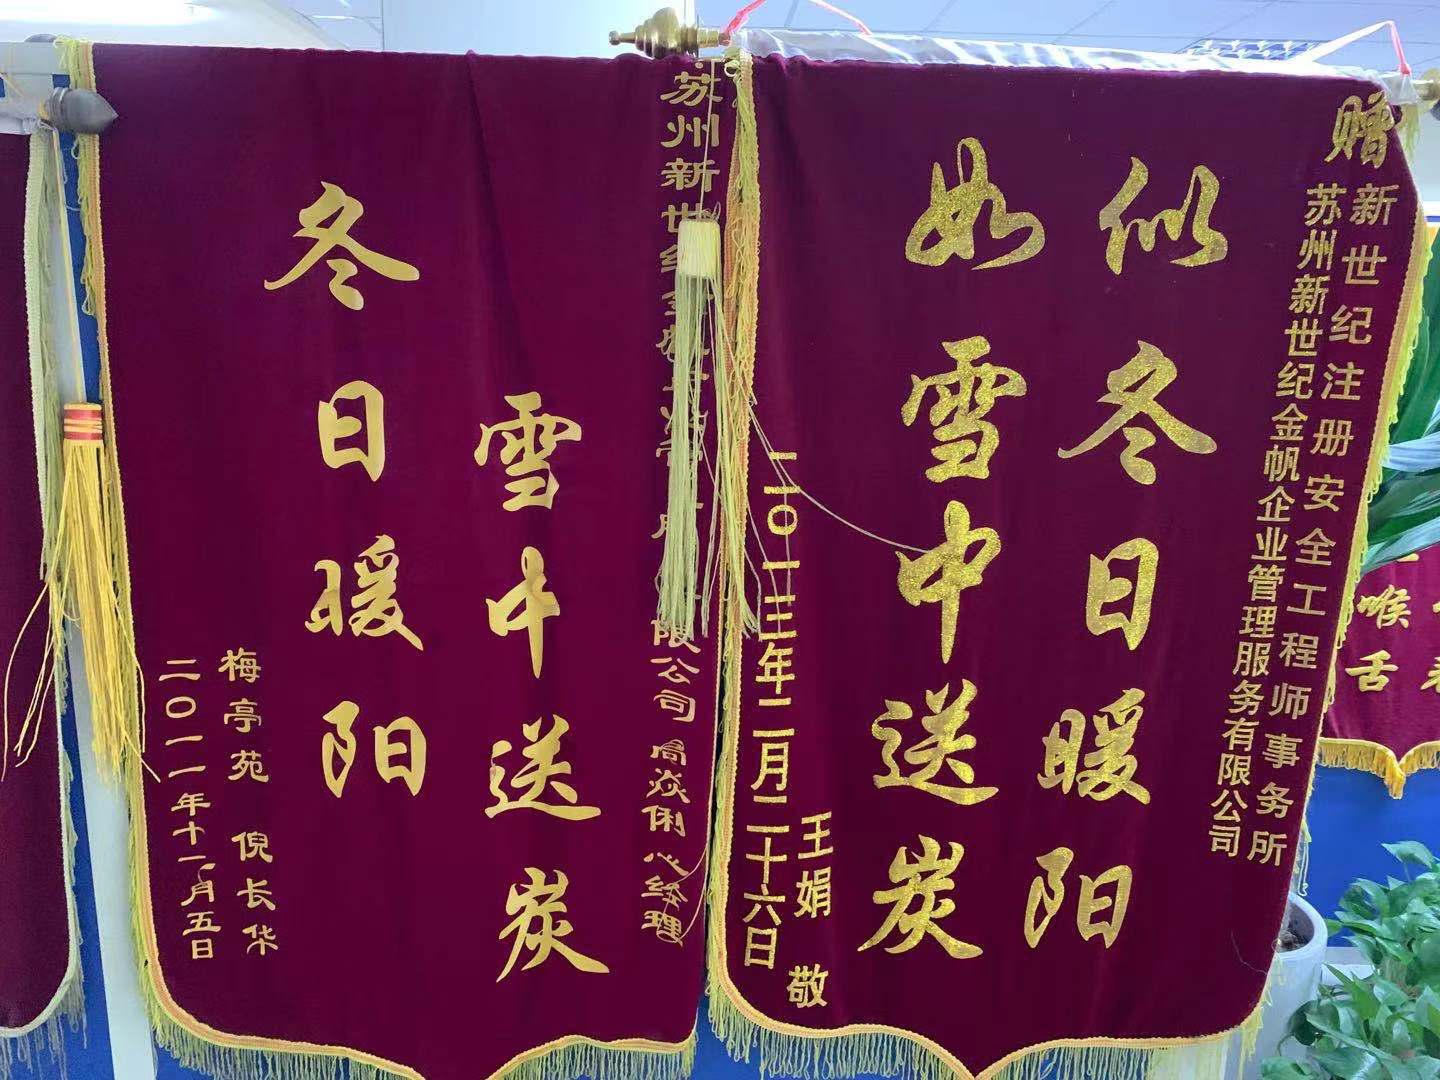 赠
新世纪注册安全工程师事务所
苏州新世纪金帆企业管理服务有限公司
似冬日暖阳
如雪中送炭
王娟 敬
二〇一三年二月二十六日
苏州新世 限公司
雪中送炭
冬日暖阳
梅亭苑 倪长华
二〇一一年十一月五日
喉舌